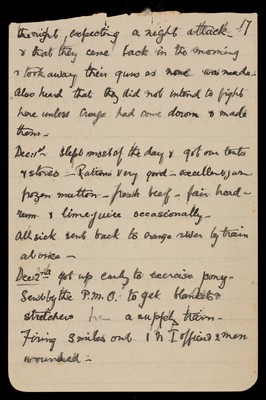 the night, expecting a night attack - 17
& that they came back in the morning
& took away their guns as none was made.
Also heard that they did not intend to fight
here unless had come down & made
them -
Dec: 1st Slept most of the day & got our tents
& stores - Rations very good - excellent jam
frozen mutton - fresh beef - fair bread -
rum & lime juice occasionally -
All sick sent back to Orange River by train
at once -
Dec: 2nd got up early to exercise pony -
Sent by the P.M.O. to get blankets &
stretchers a supply train -
Firing 3 miles out 1 officer 2 men
wounded -